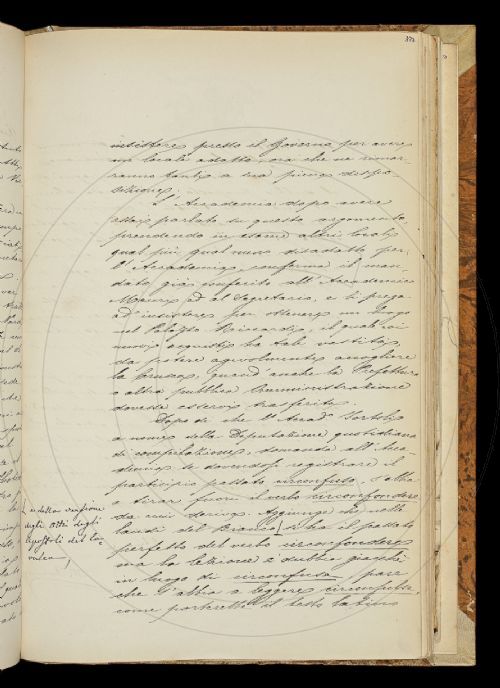 insistere presso il Governo per avere
un locale adatto, ora che ne rimar-
ranno tanti a sua piena dispo-
sizione.
L'Accademia dopo avere
assai parlato su questo argomento,
prendendo in esame altri locali
qual più qual meno disadatto per
l'Accademia, conferma il man-
dato già conferito all'Accademico
ed al Segretario, e li prega
ad insistere per ottenere un luogo
nel Palazzo Riccardi, il quale coi
nuovi acquisti ha tale vastità,
da potere agevolmente accogliere
la Crusca, quand'anche la Prefettura
o altra pubblica Amministrazione
dovesse esservi trasferita.
Dopo di che l'Accad. Tortoli
a nome della Deputazione quotidiana
di compilazione, domanda all'Acca-
demia se dovendosi registrare il
participio passato circonfuso, s'abbia
a tirar fuori il verbo circonfondere
da cui deriva. Aggiunge che nelle
laudi del Bianco si ha il passato
perfetto del verbo circonfondere
ma la lezione è dubbia giacchè
in luogo di circonfusa, pare
che s'abbia a leggere circonfulse
come porterebbe il testo latino
e della versione
degli Atti degli
Apostoli del Ca-
valca,